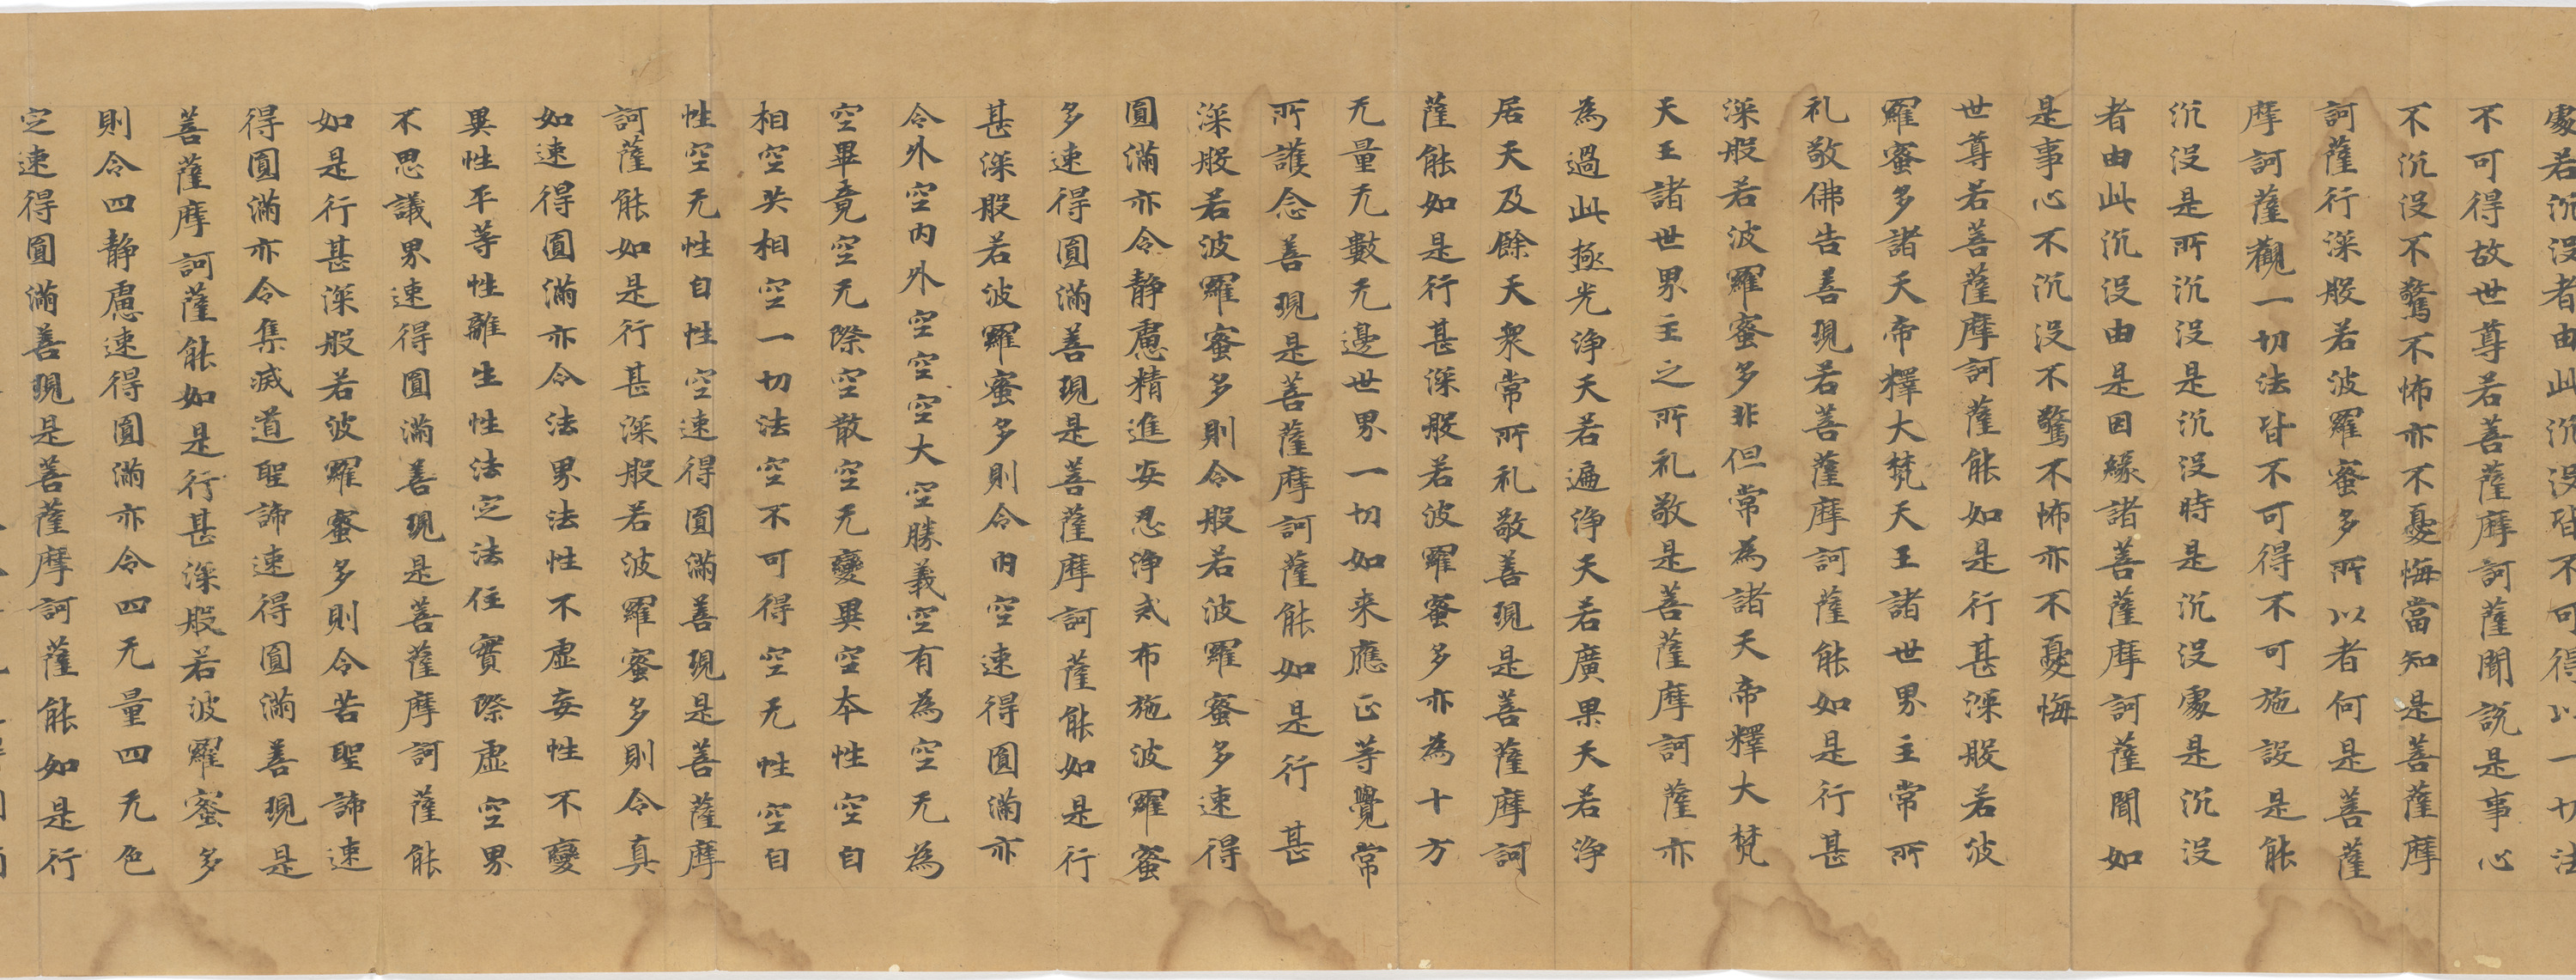 處若沉沒者由此沉沒皆不可得以一切法
不可得故世尊若菩薩摩訶薩聞說是事心
不沉沒不驚不怖亦不憂悔當知是菩薩摩
訶薩行深般若波羅蜜多所以者何是菩薩
摩訶薩觀一切法皆不可得不可施設是能
沉沒是所沉沒是沉沒時是沉沒處是沉沒
者由此沉沒由是因緣諸菩薩摩訶薩聞如
是事心不沉沒不驚不怖亦不憂悔
世尊若菩薩摩訶薩能如是行甚深般若波
羅蜜多諸天帝釋大梵天王諸世界主常所
礼敬佛告善現若菩薩摩訶薩能如是行甚
深般若波羅蜜多非但常為諸天帝釋大梵
天王諸世界主之所礼敬是菩薩摩訶薩亦
為過此極光淨天若遍淨天若廣果天若淨
居天及餘天衆常所礼敬善現是菩薩摩訶
薩能如是行甚深般若波羅蜜多亦為十方
无量无數无邊世界一切如来應正等覺常
所護念善現是菩薩摩訶薩能如是行甚
深般若波羅蜜多則令般若波羅蜜多速得
圓滿亦令静慮精進安忍淨戒布施波羅蜜
多速得圓滿善現是菩薩摩訶薩能如是行
甚深般若波羅蜜多則令內空速得圓滿亦
令外空內外空空空大空勝義空有為空无為
空畢竟空无際空散空无變異空本性空自
相空共相空一切法空不可得空无性空自
性空无性自性空速得圓滿善現是菩薩摩
訶薩能如是行甚深般若波羅蜜多則令真
如速得圓滿亦令法界法性不虛妄性不變
異性平等性離生性法定法住實際虛空界
不思議界速得圓滿善現是菩薩摩訶薩能
如是行甚深般若波羅蜜多則令苦聖諦速
得圓滿亦令集滅道聖諦速得圓滿善現是
菩薩摩訶薩能如是行甚深般若波羅蜜多
則令四静慮速得圓滿亦令四无量四无色
定速得圓滿善現是菩薩摩訶薩能如是行